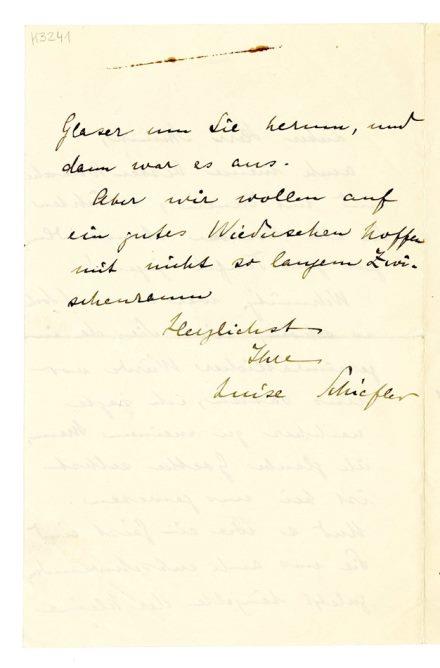 H3241
Glaser um Sie herum, und
dann war es aus.
Aber wir wollen auf
ein gutes Wiedersehen hoffen
mit nicht so langem Zwi-
schenraum
Herzlichst
Ihre
Luise Schiefler